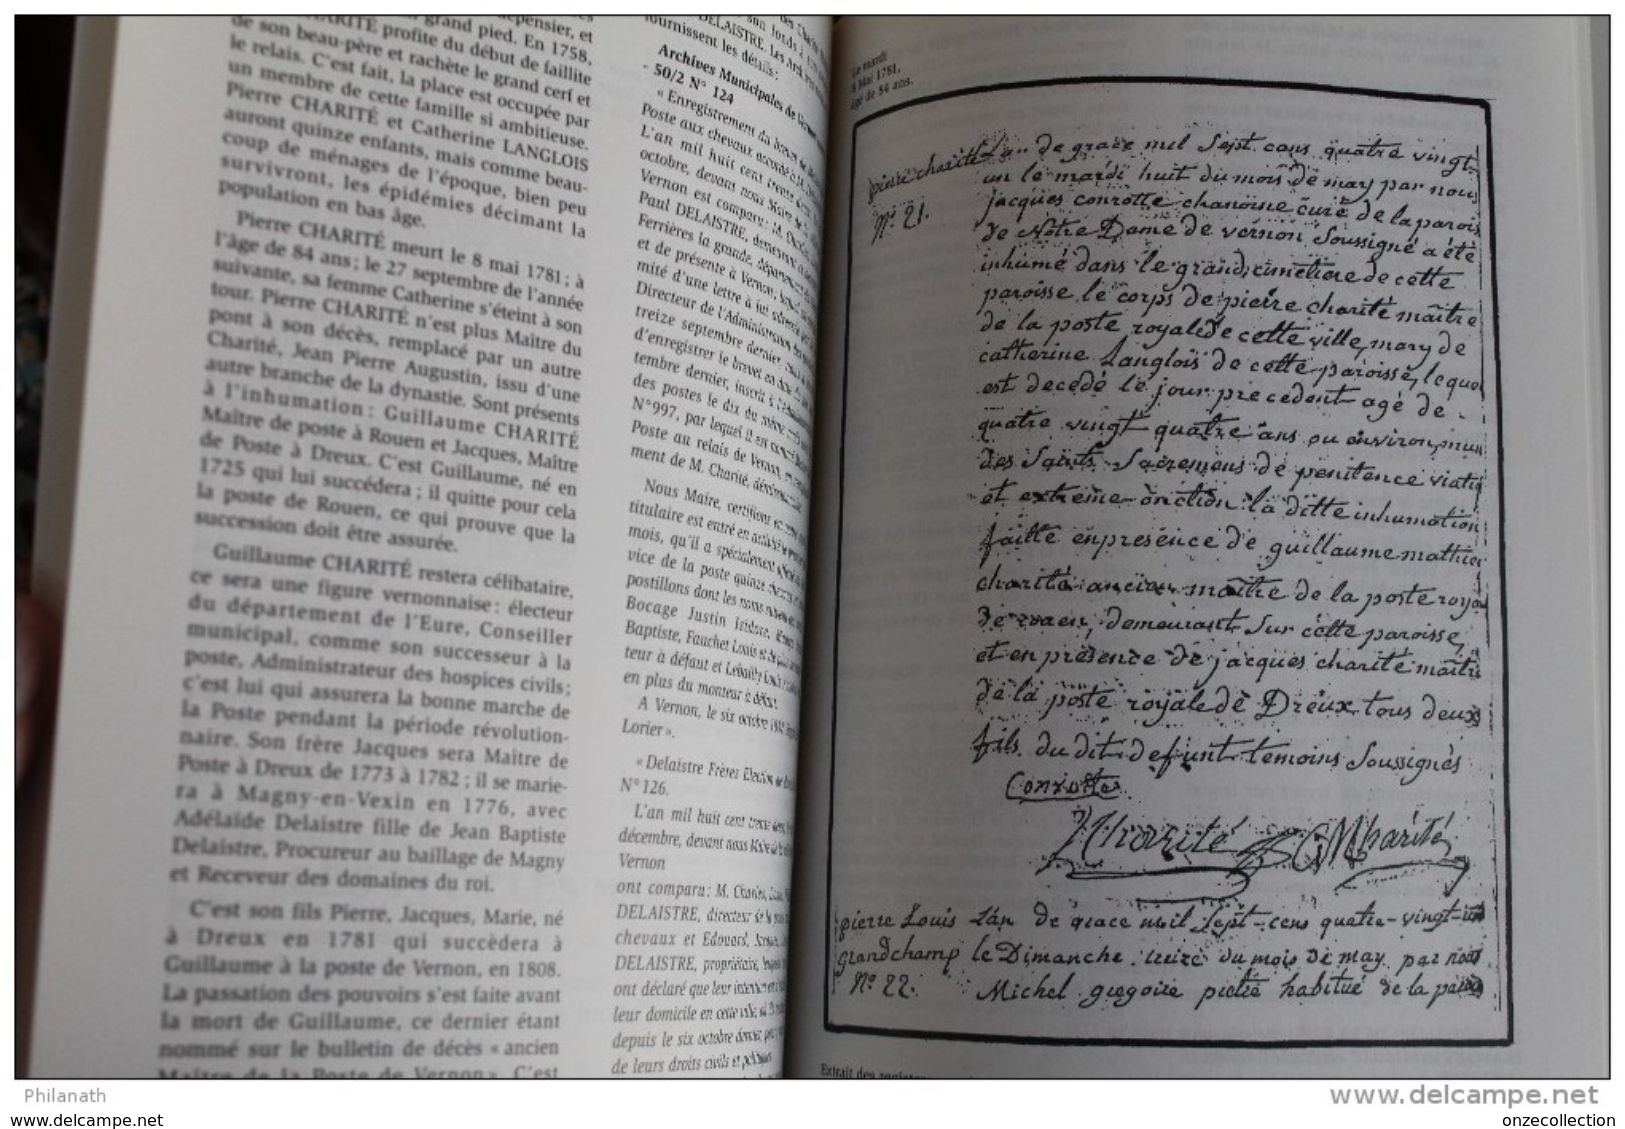 grand pied. En 1758,
CHARITÉ profite du début de faillite
de son beau-père et rachète le grand cerf et
le relais. C'est fait, la place est occupée par
un membre de cette famille si ambitieuse.
Pierre CHARITÉ et Catherine LANGLOIS
auront quinze enfants, mais comme beau-
coup de ménages de l'époque, bien peu
survivront, les épidémies décimant la
population en bas âge.
Pierre CHARITÉ meurt le 8 mai 1781 ; à
l'âge de 84 ans ; le 27 septembre de l'année
suivante, sa femme Catherine s'éteint à son
tour. Pierre CHARITÉ n'est plus Maître du
pont à son décès, remplacé par un autre
Charité, Jean Pierre Augustin, issu d'une
autre branche de la dynastie. Sont présents
à l'inhumation : Guillaume CHARITÉ
Maître de poste à Rouen et Jacques, Maître
de Poste à Dreux. C'est Guillaume, né en
1725 qui lui succédera ; il quitte pour cela
la poste de Rouen, ce qui prouve que la
succession doit être assurée.
Guillaume CHARITÉ restera célibataire,
ce sera une figure vernonnaise : électeur
du département de l'Eure, Conseiller
municipal, comme son successeur à la
poste, Administrateur des hospices civils ;
c'est lui qui assurera la bonne marche de
la Poste pendant la période révolution-
naire. Son frère Jacques sera Maître de
Poste à Dreux de 1773 à 1782 ; il se marie-
ra à Magny-en-Vexin en 1776, avec
Adélaide Delaistre fille de Jean Baptiste
Delaistre, Procureur au baillage de Magny
et Receveur des domaines du roi.
C'est son fils Pierre, Jacques, Marie, né
à Dreux en 1781 qui succèdera à
Guillaume à la poste de Vernon, en 1808.
La passation des pouvoirs s'est faite avant
la mort de Guillaume, ce dernier étant
nommé sur le bulletin de décès « ancien
Maître de la Poste de Vernon ». C'est
DELAISTRE, Les Archives
fournissent les détails :
Archives Municipales de
- 50/2 N° 124
« Enregistrement du brevet de
Poste aux chevaux accordé à
L'an mil huit cent trente
octobre, devant nous Maire de
Vernon est comparu : M.
Paul DELAISTRE, demeurant
Ferrières la grande, département
et de présente à Vernon,
mité d'une lettre à lui
Directeur de l'Administration
treize septembre dernier,
d'enregistrer le brevet en date
tembre dernier, inscrit à
des postes le dix du même
N°997, par lequel il est
Poste au relais de Vernon,
ment de M. Charité,
Nous Maire, certifions
titulaire est entré en
mois, qu'il a spécialement
vice de la poste quinze
postillons dont les noms
Bocage Justin Isidore,
Baptiste, Fauchet Louis
teur à défaut et
en plus du monteur à défaut.
A Vernon, le six octobre
Lorier ».
« Delaistre Frères Election de
N°126.
L'an mil huit cent trente
décembre, devant nous Maire de
Vernon
ont comparu : M. Charles,
DELAISTRE, directeur de la
chevaux et Edouard,
DELAISTRE, propriétaire,
ont déclaré que leur intention
leur domicile en cette ville,
depuis le six octobre dernier
de leurs droits civils et
Le mardi
8 Mai 1781,
âge de 84 ans.
pierre charité
N° 21.
L'an de grace mil sept cens quatre vingt
un le mardi huit du mois de may par nous
jacques conrotte chanoine curé de la parois
de Notre Dame de vernon soussigné a été
inhumé dans le grand cimetiere de cette
paroisse le corps de pierre charité maître
de la poste royale de cette ville, mary de
catherine Langlois de cette paroisse, lequel
est decedé le jour precedent agé de
quatre vingt quatre ans ou environ, muni
des Saints Sacremens de penitence viatiq
et extreme-onction la ditte inhumation
faitte en presence de guillaume mathieu
charité ancien maître de la poste royal
de rouen, demeurant sur cette paroisse,
et en presence de jacques charité maître
de la poste royale de Dreux tous deux
fils du dit defunt temoins Soussignés
Conrotte
Charité Charité
pierre Louis
grandchamp
N° 22.
L'an de grace mil sept-cens quatre-vingt-un
le Dimanche treize du mois de may par nous
Michel gregoire pietre habitué de la parois
Extrait des registres
Philanath
www.delcampe.net
www.delcampe.net
onzecollection